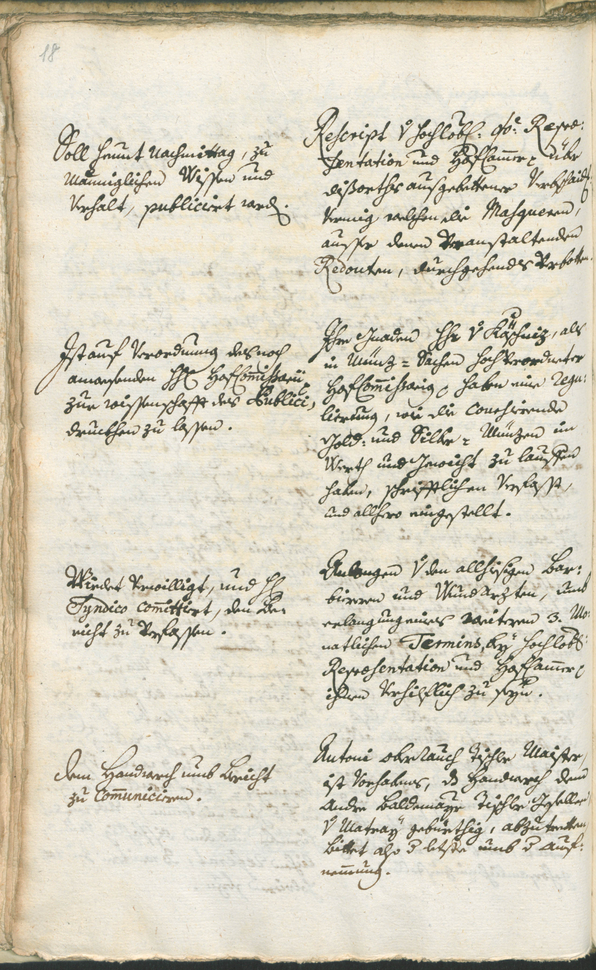 18
Soll heunt Nachmittag, zu
Männiglichen Wissen und
Verhalt, publiciret werdn.
Rescript v hochlöbl: o:ö: Repræ:
sentation und Hofkammer, über
dißorths ausgebettener Verbschaidt,
Vermög welchen die Masqueren,
ausser denen Veranstaltenden
Redouten, durchgehends Verbotten.
Ist auf Verordnung des noch
anwesenden HH Hofcommissarii,
zur wissenschafft des Publici,
druckhen zu lassen.
Ihro Gnaden Hr v Käschniz, als
in Münz=Sachen hochverordneter
Hofcommissarig, haben eine Regu:
lierung, wie die concurirende
Gold: und Silber=Münzen im
Werth und Gewicht zu lauffen
haben, schrifftlichen Verfasst,
und allhero eingestellt.
Wirdet Verwilligt, und H
Syndico committiret, den Be:
richt zu Verfassen.
Anlangen v den allhiesigen Bar:
bierern und Wundarzten, umb
erlangung eines weiteren 3. Mo:
natlichen Termins, bey hochlöbl:
Repræsentation und Hofkammer
ihnen Verhilflich zu seyn.
dem Handwerch umb Bericht
zu Communicieren.
Antoni oberrauch Tischler Maister,
ist Vorhabens, ds Handwerch dem
Andre Baldemayr Tischler Gesellen
v Matray gebürthig, abzutretten
Bittet also umb d auf:
nemmung.